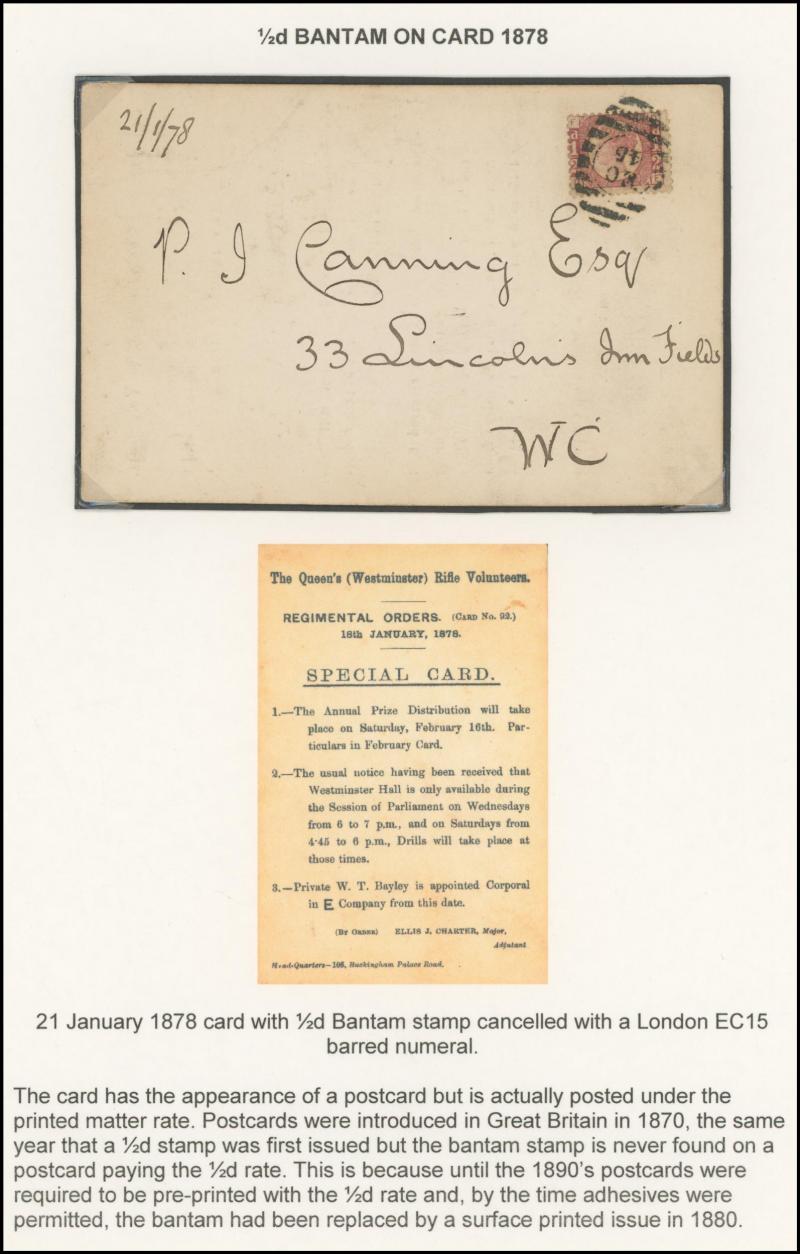 ½d BANTAM ON CARD 1878
21/1/78
EC
15
P. J Canning Esq
33 Lincoln's Inn Fields
WC
The Queen's (Westminster) Rifle Volunteers.
REGIMENTAL ORDERS. (CARD No. 92.)
18th JANUARY, 1878.
SPECIAL CARD.
1.—The Annual Prize Distribution will take
place on Saturday, February 16th. Par-
ticulars in February Card.
2.—The usual notice having been received that
Westminster Hall is only available during
the Session of Parliament on Wednesdays
from 6 to 7 p.m., and on Saturdays from
4·45 to 6 p.m., Drills will take place at
those times.
3.—Private W. T. Bayley is appointed Corporal
in E Company from this date.
(BY ORDER) ELLIS J. CHARTER, Major,
Adjutant
Head-Quarters—106, Buckingham Palace Road.
21 January 1878 card with ½d Bantam stamp cancelled with a London EC15
barred numeral.
The card has the appearance of a postcard but is actually posted under the
printed matter rate. Postcards were introduced in Great Britain in 1870, the same
year that a ½d stamp was first issued but the bantam stamp is never found on a
postcard paying the ½d rate. This is because until the 1890's postcards were
required to be pre-printed with the ½d rate and, by the time adhesives were
permitted, the bantam had been replaced by a surface printed issue in 1880.